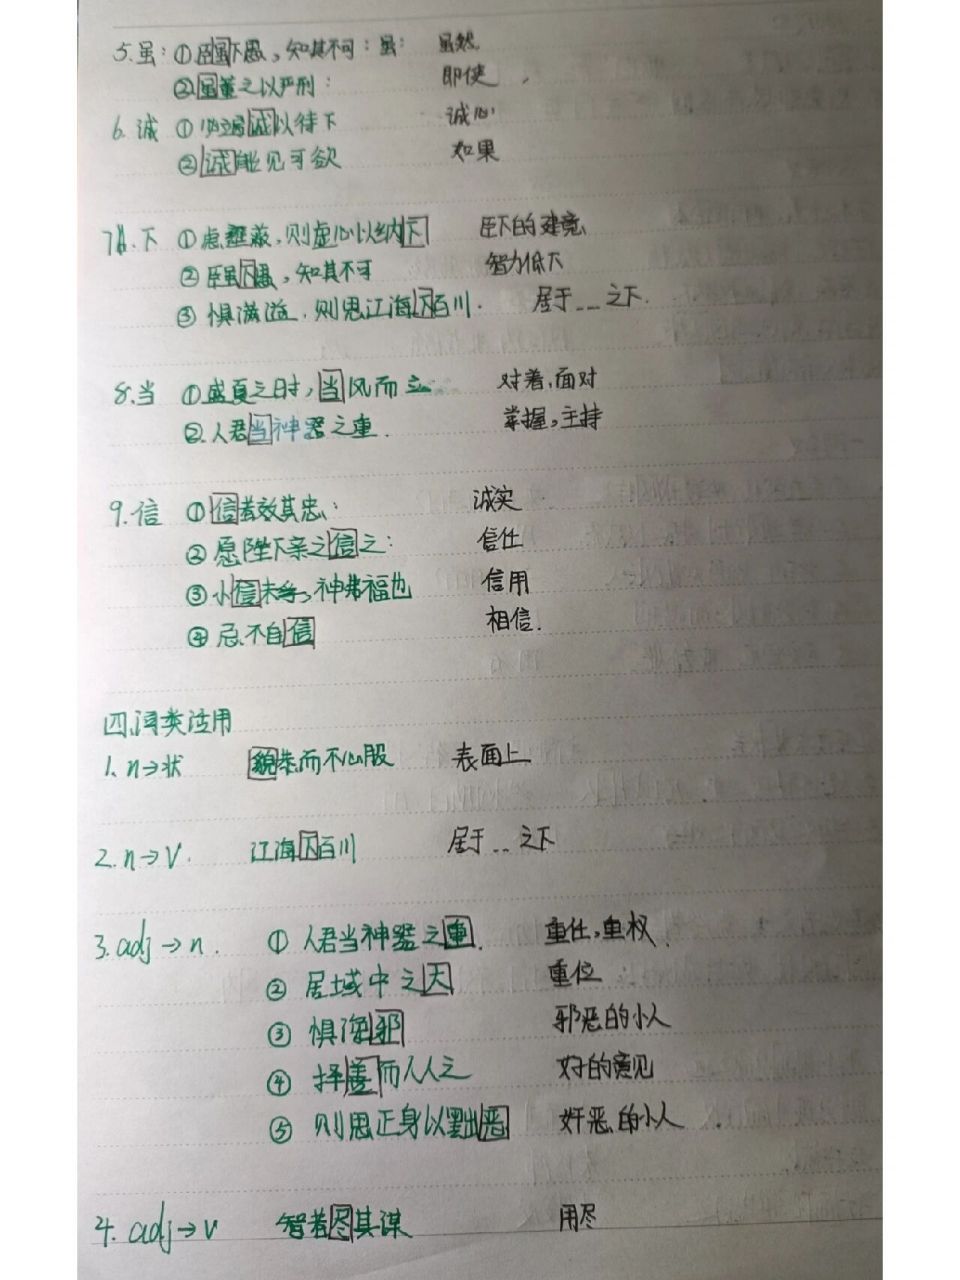 5.虽: ①臣虽下愚，知其不可：虽: 虽然
②虽董之以严刑: 即使
6.诚 ①必竭诚以待下 诚心
②诚能见可欲 如果
7.下 ①虑壅蔽，则虚心以纳下 臣下的建意
②臣虽下愚，知其不可 智力低下
③惧满溢，则思江海下百川. 居于__之下.
8.当 ①盛夏之时，当风而立 对着，面对
②.人君当神器之重. 掌握，主持
9.信 ①信者效其忠: 诚实
②愿陛下亲之信之: 信任
③小信未孚，神弗福也 信用
④忌不自信 相信.
四.词类活用
1.n→状 貌恭而不心服 表面上
2.n→V. 江海下百川 居于__之下
3.adj→n. ①人君当神器之重. 重任，重权
②居域中之大 重位
③惧谗邪 邪恶的小人
④择善而从之 好的意见
⑤则思正身以黜恶 奸恶的小人
4.adj→v 智者尽其谋 用尽